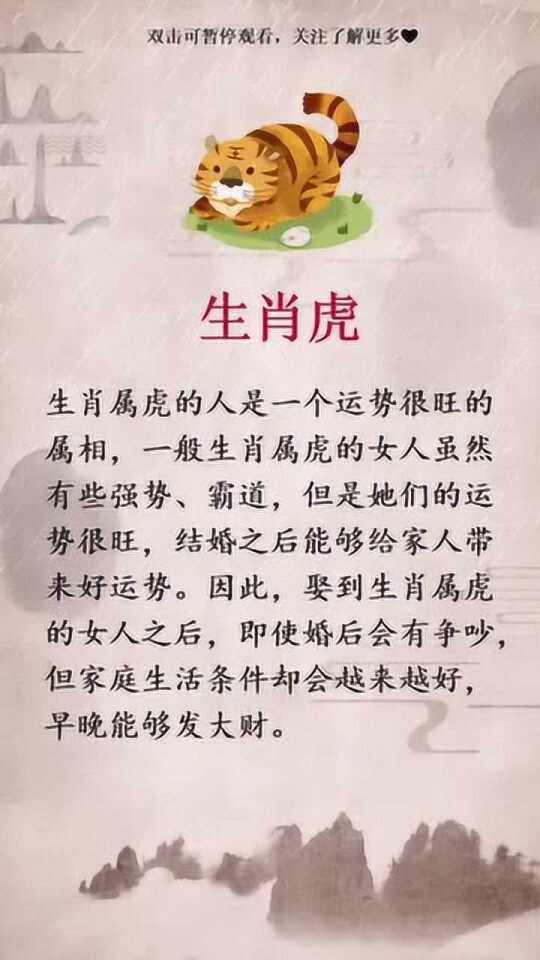 双击可暂停观看，关注了解更多🖤
生肖虎
生肖属虎的人是一个运势很旺的
属相，一般生肖属虎的女人虽然
有些强势、霸道，但是她们的运
势很旺，结婚之后能够给家人带
来好运势。因此，娶到生肖属虎
的女人之后，即使婚后会有争吵，
但家庭生活条件却会越来越好，
早晚能够发大财。